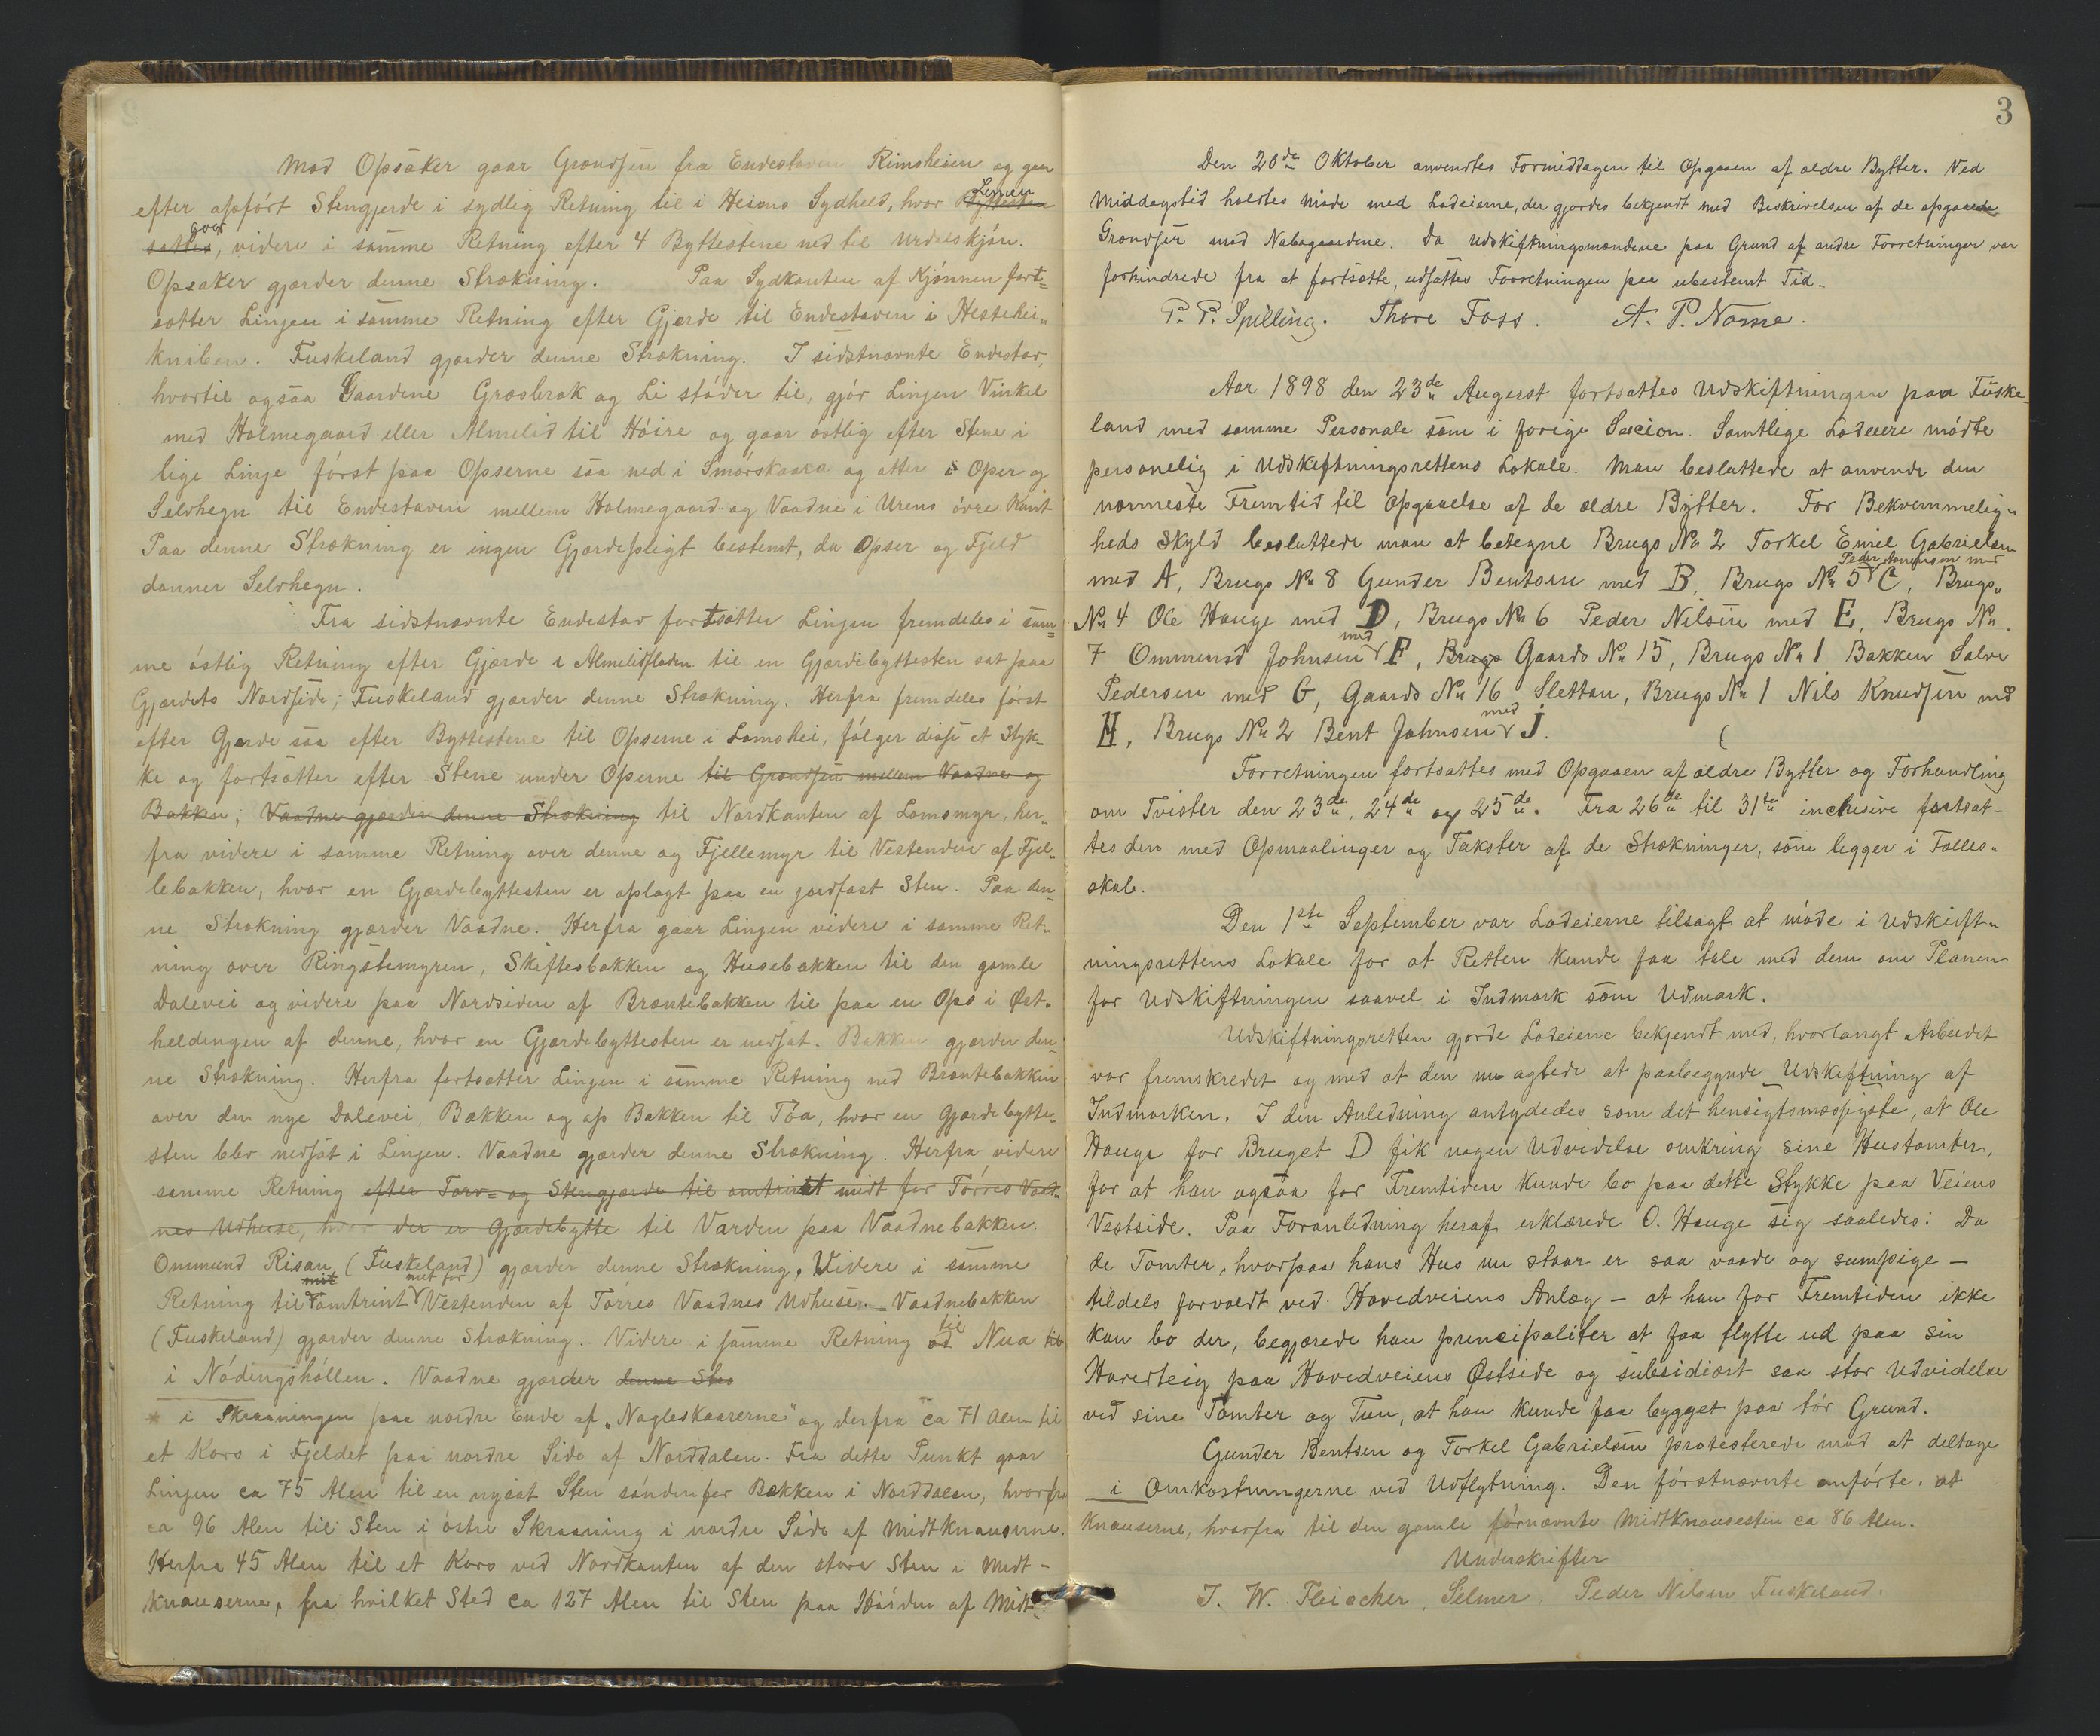 Mod Opsaker gaar Grændsen fra Endestaven Rimsheien og gaar
efter opført Stengjerde i sydlig Retning til i Heiens Sydheld, hvor Byttesten Lenien
sattes over, videre i samme Retning efter 4 Byttestene ned til Urdalskjøn.
Opsaker gjærder denne Strækning. Paa Sydkanten af Kjønnen fort-
sætter Linjen i samme Retning efter Gjerde til Endestaven i Hestehei-
kniben. Fuskeland gjærder denne Strækning. I sidstnævnte Endestav,
hvortil ogsaa Gaardene Græsbrøk og Li støder til, gjør Linjen Vinkel
med Holmegaard eller Almelid til Høire og gaar østlig efter Stene i
lige Linje først paa Opserne saa ned i Smørskaara og atter i Opser og
Selvhegn til Endestaven mellem Holmegaard og Vaadne i Urens øvre Kant
Paa denne Strækning er ingen Gjærdepligt bestemt, da Opser og Fjeld
danner Selvhegn.
Fra sidstnævnte Endestav fortsætter Linjen fremdeles i sam-
me østlig Retning efter Gjærde i Almelidfladen til en Gjærdebyttesten sat paa
Gjærdets Nordside; Fuskeland gjærder denne Strækning. Herfra fremdeles først
efter Gjerde saa efter Byttestene til Opserne i Lomshei, følger disse et Styk-
ke og fortsætter efter Stene under Opserne til Grændsen mellem Vaadne og
Bakken; Vaadne gjærder denne Strækning til Nordkanten af Lomsmyr, her-
fra videre i samme Retning over denne og Fjellemyr til Vestenden af Fjel-
lebakken, hvor en Gjærdebyttesten er oplagt paa en jordfast Sten. Paa den-
ne Strækning gjærder Vaadne. Herfra gaar Linjen videre i samme Ret-
ning over Ringstemyren, Skiftesbakken og Husebakken til den gamle
Dalevei og videre paa Nordsiden af Brøntebakken til paa en Ops i Øst-
heldingen af denne, hvor en Gjærdebyttesten er nedsat. Bakken gjærder den-
ne Strækning. Herfra fortsætter Linjen i samme Retning ned Brøntebakken
over den nye Dalevei, Bækken og op Bakken til Tøa, hvor en Gjærdebytte-
sten blev nedsat i Linjen. Vaadne gjærder denne Strækning. Herfra videre
samme Retning efter Torv- og Stengjærde til omtrint midt for Tørres Vaad-
nes Udhuse, hvor der er Gjærdebytte til Varden paa Vaadnebakken.
Ommund Risan (Fuskeland) gjærder denne Strækning. Videre i samme
Retning til mit omtrint mit for Vestenden af Tørres Vaadnes Udhuse. Vaadnebakken
(Fuskeland) gjærder denne Strækning. Videre i samme Retning ad til Nua til
i Nødingshøllen. Vaadne gjærder denne Stræ
* i Skraaningen paa nordre Ende af „Nagleskaarerne" og derfra ca 71 Alen til
et Kors i Fjeldet paa nordre Side af Norddalen. Fra dette Punkt gaar
Linjen ca 75 Alen til en nysat Sten søndenfor Bækken i Norddalen, hvorfra
ca 96 Alen til Sten i østre Skraaning i nordre Side af Midtknauserne.
Herfra 45 Alen til et Kors ved Nordkanten af den store Sten i Midt-
knauserne, fra hvilket Sted ca 127 Alen til Sten paa Høiden af Midt-
3
Den 20de Oktober anvendtes Formiddagen til Opgaaen af ældre Bytter. Ved
Middagstid holdtes Møde med Lodeierne, der gjordes bekjendt med Beskrivelsen af de opgaaede
Grændser mod Nabogaardene. Da Udskiftningsmændene paa Grund af andre Forretninger var
forhindrede fra at fortsætte, udsattes Forretningen paa ubestemt Tid.
P. P. Spilling. Thore Foss. A. P. Nome.
Aar 1898 den 23de August fortsattes Udskiftningen paa Fuske-
land med samme Personale som i forige Sescion. Samtlige Lodeiere mødte
personelig i Udskiftningsrettens Lokale. Man besluttede at anvende den
nærmeste Fremtid til Opgaaelse af de ældre Bytter. For Bekvemmelig-
heds Skyld besluttede man at betegne Brugs No 2 Torkel Emil Gabrielsen
med A, Brugs No 8 Gunder Bentsen med B, Brugs No 5 Peder Aanensen med C, Brugs
No 4 Ole Hauge med D, Brugs No 6 Peder Nilsen med E, Brugs No
7 Ommund Johnsen med F, Brugs Gaards No 15, Brugs No 1 Bakken Salve
Pedersen med G, Gaards No 16 Slettan, Brugs No 1 Nils Knudsen med
H, Brugs No 2 Bent Johnsen med J.
Forretningen fortsattes med Opgaaen af ældre Bytter og Forhandling
om Tvister den 23de, 24de og 25de. Fra 26de til 31te inclusive fortsat-
tes den med Opmaalinger og Takster af de Strækninger, som legger i Fælles-
skab.
Den 1ste September var Lodeierne tilsagt at møde i Udskift-
ningsrettens Lokale for at Retten kunde faa tale med dem om Planen
for Udskiftningen saavel i Indmark som Udmark.
Udskiftningsretten gjorde Lodeierne bekjendt med, hvorlangt Arbeidet
var fremskredet og med at den nu agtede at paabegynde Udskiftning af
Indmarken. I den Anledning antydedes som det hensigtsmæssigste, at Ole
Hauge for Bruget D fik nogen Udvidelse omkring sine Hustomter,
for at han ogsaa for Fremtiden kunde bo paa dette Stykke paa Veiens
Vestside. Paa Foranledning heraf erklærede O. Hauge sig saaledes: Da
de Tomter, hvorpaa hans Hus nu staar er saa vaade og sumpige –
tildels forvoldt ved Hovedveiens Anlæg – at han for Fremtiden ikke
kan bo der, begjærede han principaliter at faa flytte ud paa sin
Haverteig paa Hovedveiens Østside og subsidiært saa stor Udvidelse
ved sine Tomter og Tun, at han kunde faa bygget paa tør Grund.
Gunder Bentsen og Torkel Gabrielsen protesterede mod at deltage
i Omkostningerne ved Udflytning. Den førstnævnte anførte, at
Knauserne, hvorfra til den gamle førnævnte Midtknausesten ca 86 Alen.
Underskrifter
J. W. Fleischer, Selmer, Peder Nilsen Fuskeland.